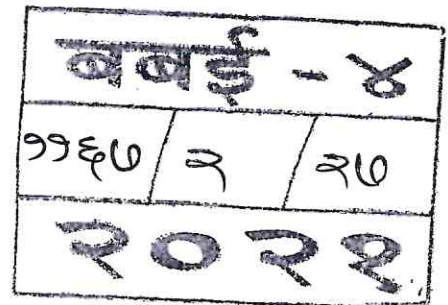 बबई - ४
११६७ / २ / २७
२०२१